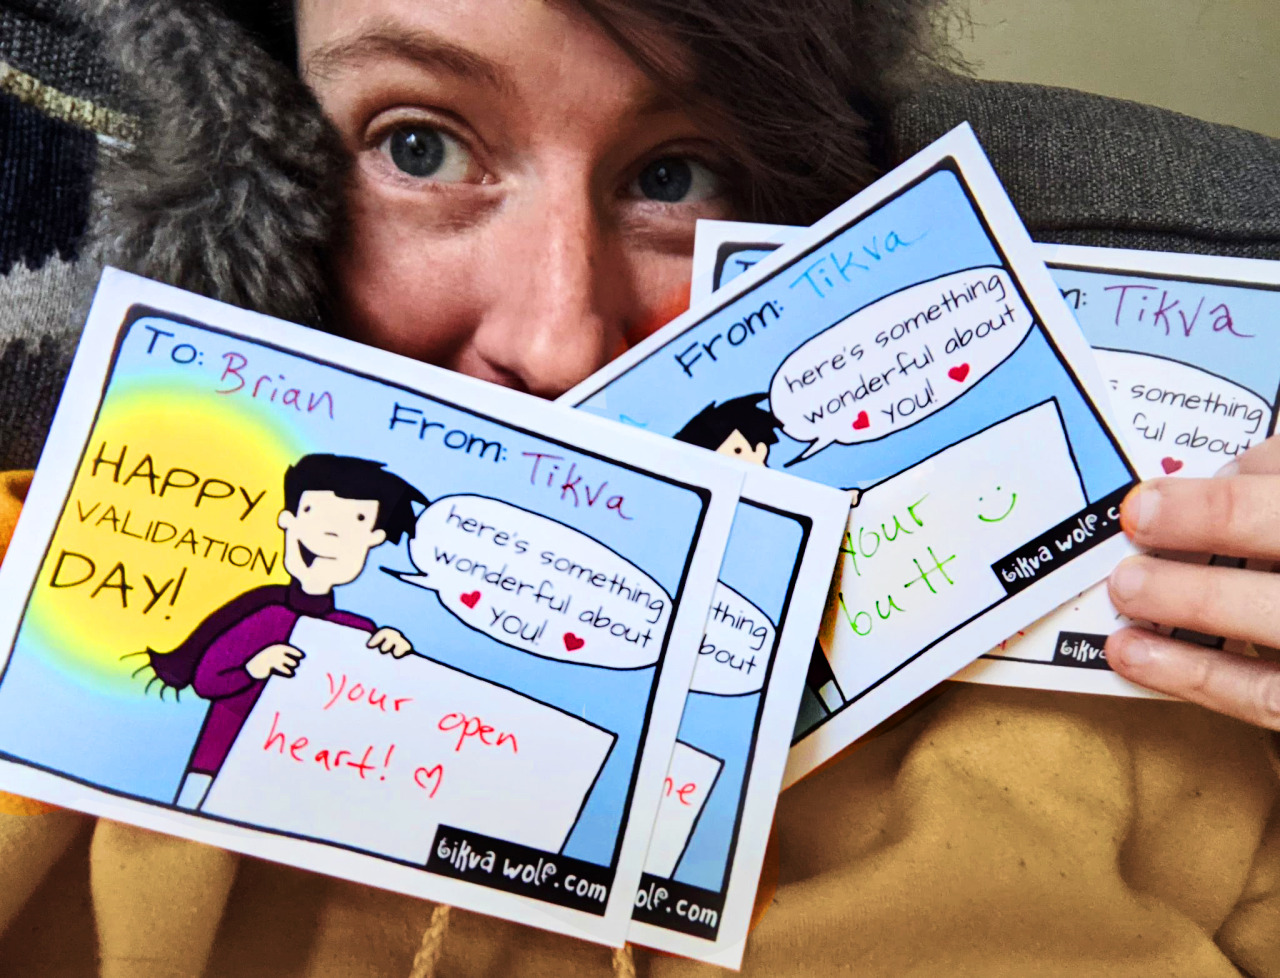 To: Brian From: Tikva
HAPPY
VALIDATION
DAY!
here's something
wonderful about
you!
your open
heart!
tikva wolf.com
thing
bout
olf.com
From: Tikva
here's something
wonderful about
you!
your
butt
tikva wolf.c
Tikva
something
ful about
tikva